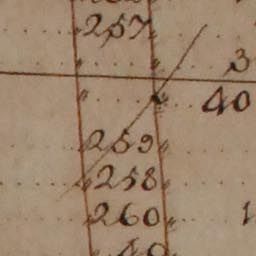 257
3
40
259
258
260 1
40